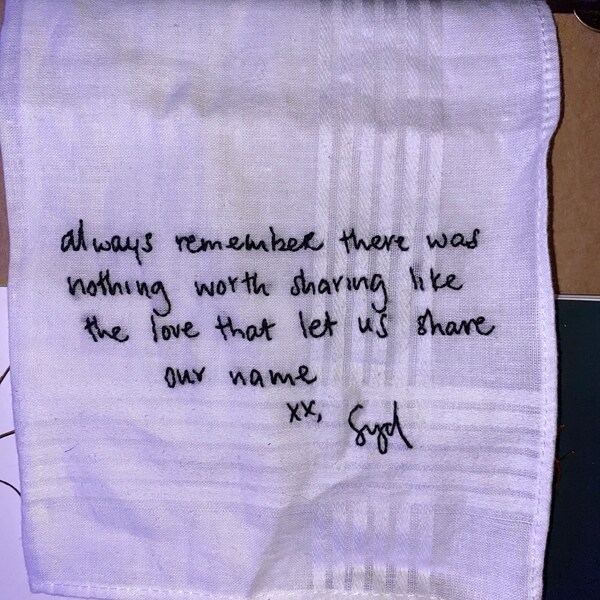 always remember there was
nothing worth sharing like
the love that let us share
our name
xx, Syd